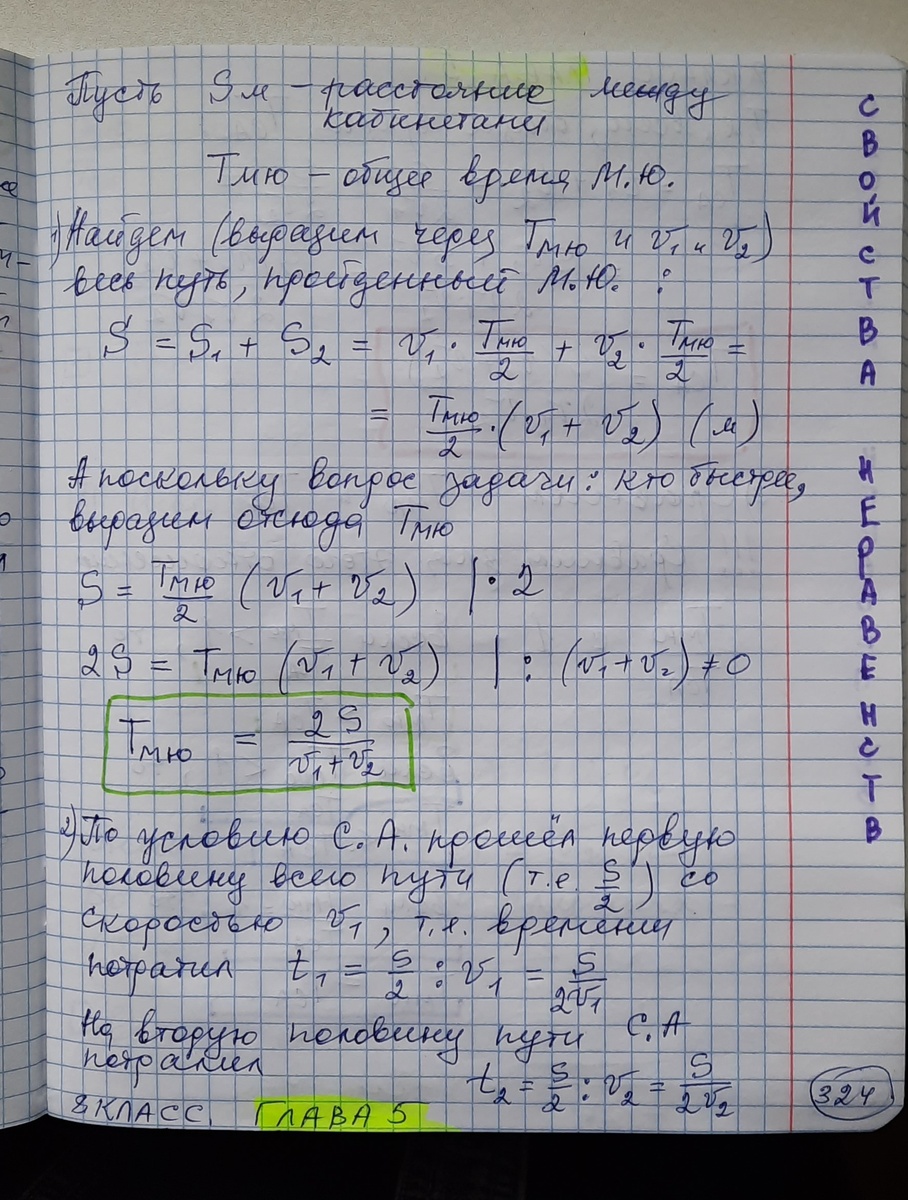 Пусть Sм – расстояние между
кабинетами
Tмю – общее время М.Ю.
1) Найдем (выразим через Tмю и v₁ и v₂)
весь путь, пройденный М.Ю. :
S = S₁ + S₂ = v₁ · Tмю/2 + v₂ · Tмю/2 =
= Tмю/2 · (v₁ + v₂) (м)
А поскольку вопрос задачи: кто быстрее,
выразим отсюда Tмю
S = Tмю/2 (v₁ + v₂) | · 2
2S = Tмю (v₁ + v₂) | : (v₁+v₂) ≠ 0
Tмю = 2S/(v₁+v₂)
2) По условию С.А. прошёл первую
половину всего пути (т.е. S/2) со
скоростью v₁, т.е. времени
потратил t₁ = S/2 : v₁ = S/2v₁
На вторую половину пути С.А
потратил
t₂ = S/2 : v₂ = S/2v₂
8 КЛАСС. ГЛАВА 5
324
СВОЙСТВА НЕРАВЕНСТВ